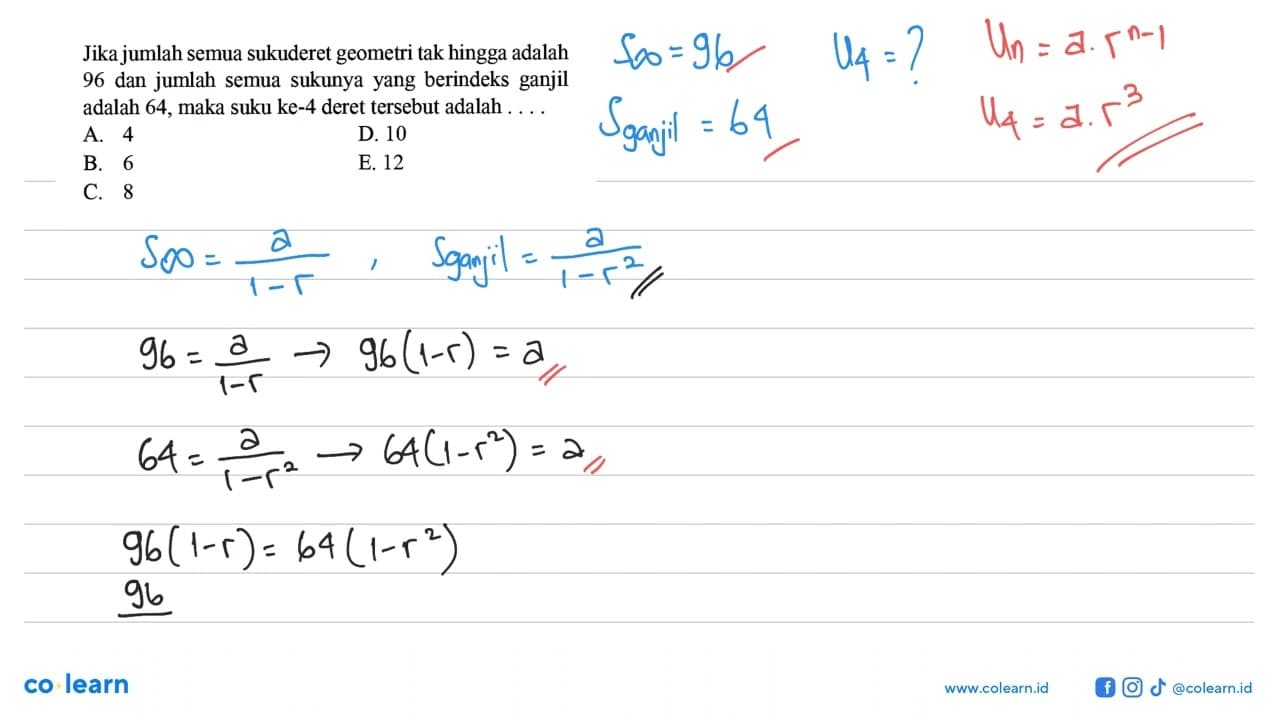 Jika jumlah semua sukuderet geometri tak hingga adalah
96 dan jumlah semua sukunya yang berindeks ganjil
adalah 64, maka suku ke-4 deret tersebut adalah . . . .
A. 4 D. 10
B. 6 E. 12
C. 8
S∞ = 96 U4 = ? Un = a . r^n-1
Sganjil = 64 U4 = a . r^3
S∞ = a/1-r , Sganjil = a/1-r^2
96 = a/1-r → 96(1-r) = a
64 = a/1-r^2 → 64(1-r^2) = a
96(1-r) = 64(1-r^2)
96
co learn www.colearn.id @colearn.id